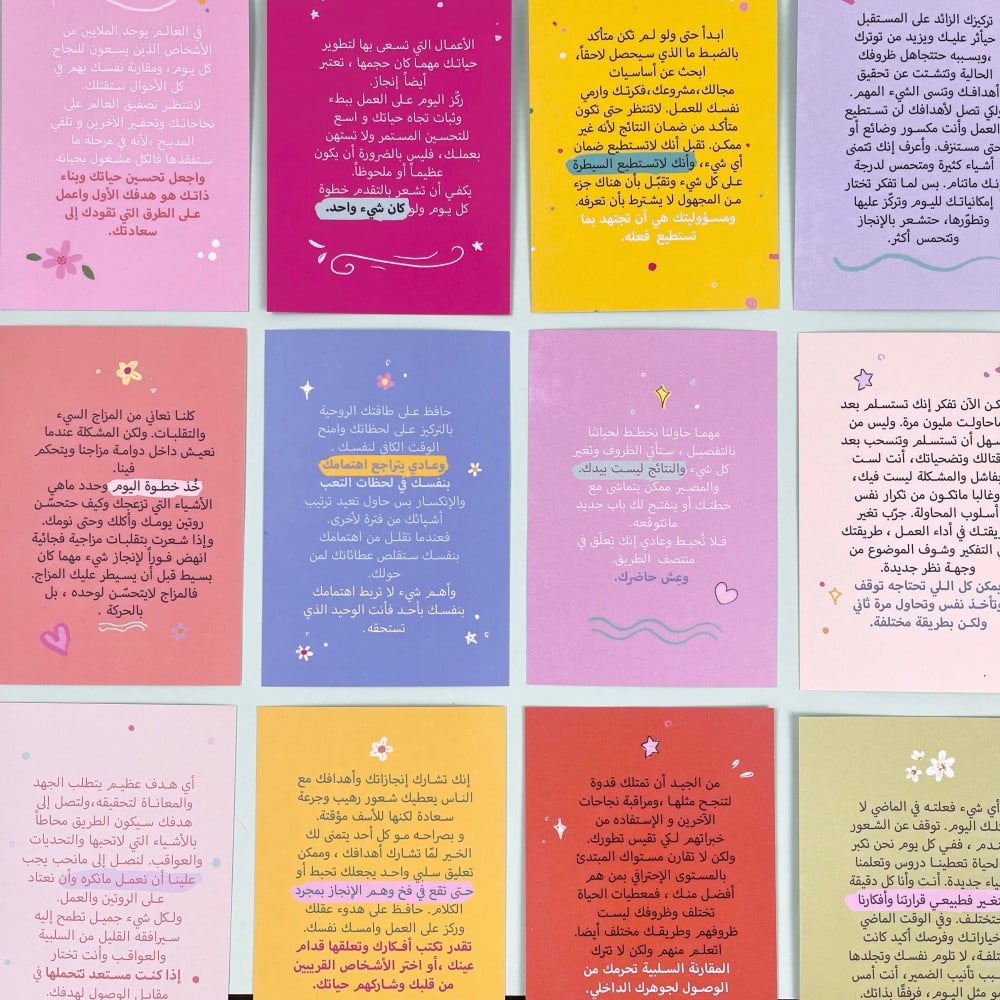 تركيزك الزائد على المستقبل
حيأثر عليك ويزيد من توترك
،وبسببه حتتجاهل ظروفك
الحالية وتتشتت عن تحقيق
أهدافك وتنسى الشيء المهم.
ولكي تصل لأهدافك لن تستطيع
العمل وأنت مكسور وضائع أو
حتى مستنزف. وأعرف إنك تتمنى
أشياء كثيرة ومتحمس لدرجة
إنك ماتنام. بس لما تفكر تختار
إمكانياتك لليوم وتركّز عليها
وتطوّرها، حتشعر بالإنجاز
وتتحمس أكثر.
ابدأ حتى ولو لم تكن متأكد
بالضبط ما الذي سيحصل لاحقاً،
ابحث عن أساسيات
مجالك،مشروعك،فكرتك وارمي
نفسك للعمل. لاتنتظر حتى تكون
متأكد من ضمان النتائج لأنه غير
ممكن. تقبل أنك لاتستطيع ضمان
أي شيء، وأنك لاتستطيع السيطرة
على كل شيء وتقبّل بأن هناك جزء
من المجهول لا يشترط بأن تعرفه.
ومسؤوليتك هي أن تجتهد بما
تستطيع فعله.
الأعمال التي تسعى بها لتطوير
حياتك مهما كان حجمها ، تعتبر
أيضاً إنجاز.
ركّز اليوم على العمل ببطء
وثبات تجاه حياتك و اسع
للتحسين المستمر ولا تستهن
بعملك، فليس بالضرورة أن يكون
عظيماً أو ملحوظاً.
يكفي أن تشعر بالتقدم خطوة
كل يوم ولو كان شيء واحد.
في العالم يوجد الملايين من
الأشخاص الذين يسعون للنجاح
كل يوم، ومقارنة نفسك بهم في
كل الأحوال ستقتلك.
لاتنتظر تصفيق العالم على
نجاحاتك وتحفيز الآخرين و تلقي
المديح ،لأنه في مرحلة ما
ستفقدها فالكل مشغول بحياته.
واجعل تحسين حياتك وبناء
ذاتك هو هدفك الأول واعمل
على الطرق التي تقودك إلى
سعادتك.
الآن تفكر إنك تستسلم بعد
ماحاولت مليون مرة. وليس من
أن تستسلم وتنسحب بعد
قتالك وتضحياتك، أنت لست
بفاشل والمشكلة ليست فيك،
وغالبا ماتكون من تكرار نفس
أسلوب المحاولة. جرّب تغير
في أداء العمل ، طريقتك
التفكير وشوف الموضوع من
وجهة نظر جديدة.
يمكن كل اللي تحتاجه توقف
وتأخذ نفس وتحاول مرة ثاني
ولكن بطريقة مختلفة.
مهما حاولنا نخطط لحياتنا
بالتفصيل ، ستأتي الظروف وتغير
كل شيء والنتائج ليست بيدك.
والمصير ممكن يتماشى مع
خطتك أو ينفتح لك باب جديد
ماتتوقعه.
فلا تُحبط وعادي إنك تِعلَق في
منتصف الطريق.
وعِش حاضرك.
حافظ على طاقتك الروحية
بالتركيز على لحظاتك وامنح
الوقت الكافي لنفسك .
وعادي يتراجع اهتمامك
بنفسك في لحظات التعب
والإنكسار بس حاول تعيد ترتيب
أشيائك من فترة لأخرى.
فعندما تقلل من اهتمامك
بنفسك ستقلص عطائاتك لمن
حولك.
وأهم شيء لا تربط اهتمامك
بنفسك بأحد فأنت الوحيد الذي
تستحقه.
كلنا نعاني من المزاج السيء
والتقلبات. ولكن المشكلة عندما
نعيش داخل دوامة مزاجنا ويتحكم
فينا.
خُذ خطوة اليوم وحدد ماهي
الأشياء التي تزعجك وكيف حتحسّن
روتين يومك وأكلك وحتى نومك.
وإذا شعرت بتقلبات مزاجية فجائية
انهض فوراً لإنجاز شيء مهما كان
بسيط قبل أن يسيطر عليك المزاج.
فالمزاج لايتحسّن لوحده ، بل
بالحركة .
أي شيء فعلته في الماضي لا
اليوم. توقف عن الشعور
، ففي كل يوم نحن نكبر
تعطينا دروس وتعلمنا
جديدة. أنت وأنا كل دقيقة
فطبيعي قرارتنا وأفكارنا
وفي الوقت الماضي
خياراتك وفرصك أكيد كانت
لا تلوم نفسك وتجلدها
تأنيب الضمير، أنت أمس
مثل اليوم، فرفقًا بذاتك.
من الجيد أن تمتلك قدوة
لتنجح مثلها ،ومراقبة نجاحات
الآخرين و الإستفاده من
خبراتهم لكي تقيس تطورك.
ولكن لا تقارن مستواك المبتدئ
بالمستوى الإحترافي بمن هم
أفضل منك ، فمعطيات الحياة
تختلف وظروفك ليست
ظروفهم وطريقك مختلف أيضا.
اتعلم منهم ولكن لا تترك
المقارنة السلبية تحرمك من
الوصول لجوهرك الداخلي.
إنك تشارك إنجازاتك وأهدافك مع
الناس يعطيك شعور رهيب وجرعة
سعادة لكنها للأسف مؤقتة.
و بصراحه مو كل أحد يتمنى لك
الخير لمّا تشارك أهدافك ، وممكن
تعليق سلبي واحد يجعلك تحبط أو
حتى تقع في فخ وهم الإنجاز بمجرد
الكلام. حافظ على هدوء عقلك
وركز على العمل وامسك نفسك.
تقدر تكتب أفكارك وتعلقها قدام
عينك ،أو اختر الأشخاص القريبين
من قلبك وشاركهم حياتك.
أي هدف عظيم يتطلب الجهد
والمعاناة لتحقيقه،ولتصل إلى
هدفك سيكون الطريق محاطاً
بالأشياء التي لاتحبها والتحديات
والعواقب. لنصل إلى مانحب يجب
علينا أن نعمل مانكره وأن نعتاد
على الروتين والعمل.
ولكل شيء جميل تطمح إليه
سيرافقه القليل من السلبية
والعواقب وأنت تختار
إذا كنت مستعد تتحملها في
مقابل الوصول لهدفك.